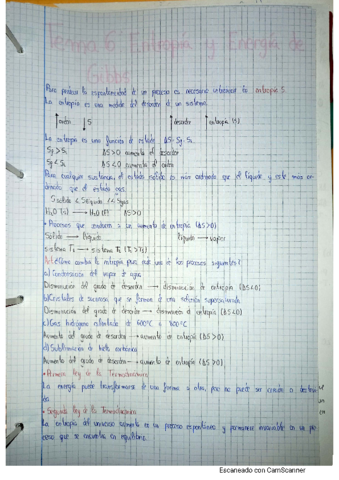 Tema 6. Entropía y Energía de
Gibbs
Para predecir la espontaneidad de un proceso es necesario introducir la entropía S
La entropía es una medida del desorden de un sistema.
orden S desorden entropía (S)
La entropía es una función de estado ΔS = Sf - Si
Sf > Si ΔS>0 aumenta el desorden
Sf < Si ΔS<0 aumenta el orden
Para cualquier sustancia, el estado sólido es más ordenado que el líquido y este más
ordenado que el estado gas.
S sólido < S líquido << S gas
H₂O (s) → H₂O (l) ΔS>0
• Procesos que conducen a un aumento de entropía (ΔS>0)
Sólido → líquido líquido → vapor
sistema T₁ → sistema T₂ (T₂>T₁)
Act ¿Cómo cambia la entropía para cada uno de los procesos siguientes?
a) Condensación del vapor de agua
Disminución del grado de desorden → disminución de entropía (ΔS<0)
b) Cristales de sacarosa que se forman de una solución supersaturada
Disminución del grado de desorden → disminución de entropía (ΔS<0)
c) Gas hidrógeno calentado de 600°C a
Aumento del grado de desorden → aumento de entropía (ΔS>0)
d) Sublimación de hielo
Aumento del grado de desorden → aumento de entropía (ΔS>0)
• Primera Ley de la Termodinámica
La energía puede transformarse de una forma a otra, pero no puede ser creada o
• Segunda Ley de la Termodinámica
La entropía del universo aumenta en un proceso espontáneo y permanece invariable en un
proceso que se encuentra en equilibrio.
Escaneado con CamScanner